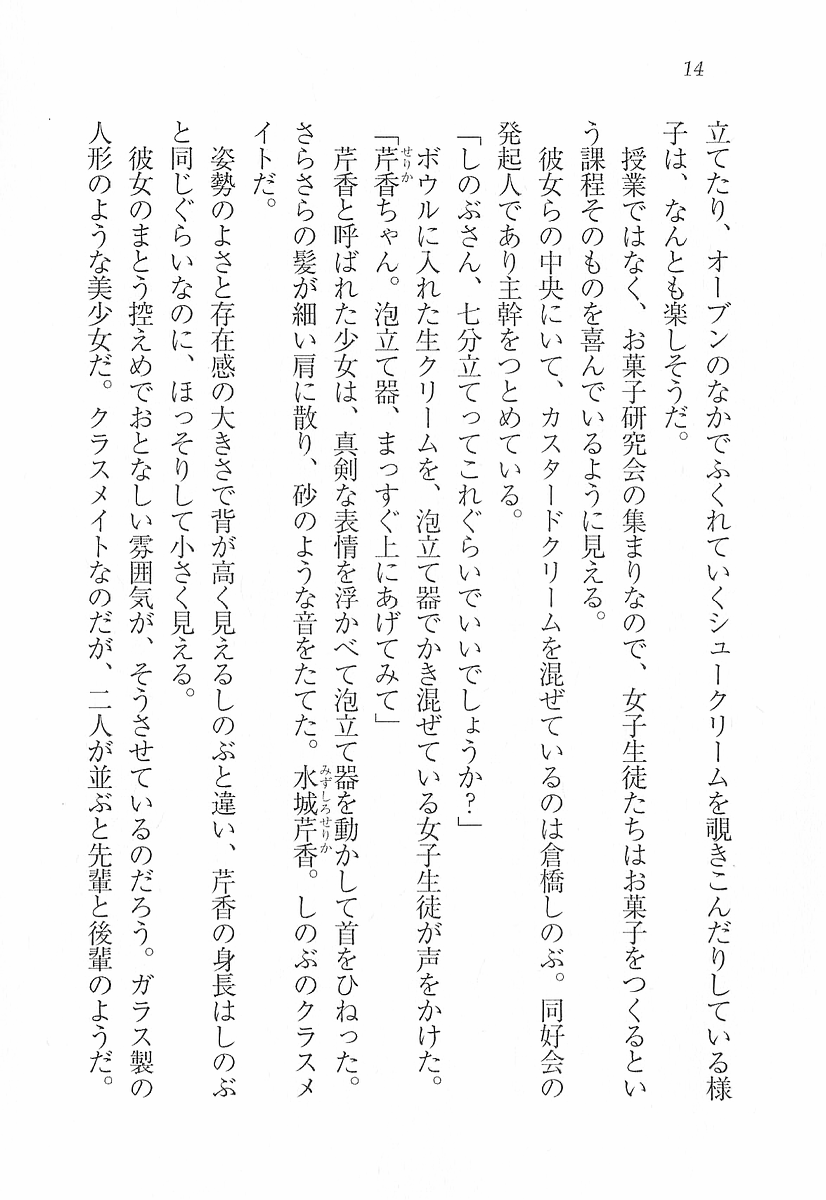 14
立てたり、オーブンのなかでふくれていくシュークリームを覗きこんだりしている様
子は、なんとも楽しそうだ。
授業ではなく、お菓子研究会の集まりなので、女子生徒たちはお菓子をつくるとい
う課程そのものを喜んでいるように見える。
彼女らの中央にいて、カスタードクリームを混ぜているのは倉橋しのぶ。同好会の
発起人であり主幹をつとめている。
「しのぶさん、七分立てってこれぐらいでいいでしょうか？」
ボウルに入れた生クリームを、泡立て器でかき混ぜている女子生徒が声をかけた。
せりか
「芹香ちゃん。泡立て器、まっすぐ上にあげてみて」
芹香と呼ばれた少女は、真剣な表情を浮かべて泡立て器を動かして首をひねった。
みずしろせりか
さらさらの髪が細い肩に散り、砂のような音をたてた。水城芹香。しのぶのクラスメ
イトだ。
姿勢のよさと存在感の大きさで背が高く見えるしのぶと違い、芹香の身長はしのぶ
と同じぐらいなのに、ほっそりして小さく見える。
彼女のまとう控えめでおとなしい雰囲気が、そうさせているのだろう。ガラス製の
人形のような美少女だ。クラスメイトなのだが、二人が並ぶと先輩と後輩のようだ。